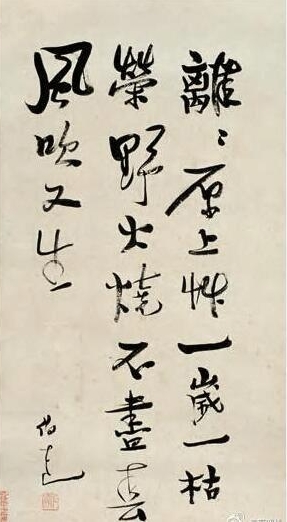 離〻原上艸一歲一枯
榮野火燒不盡春
風吹又生
伯